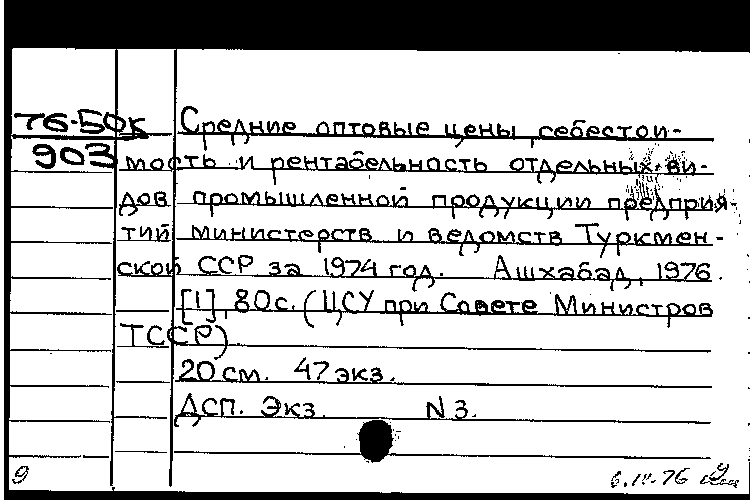 76-50к Средние оптовые цены, себестои-
903 мость и рентабельность отдельных ви-
дов промышленной продукции предприя-
тий министерств и ведомств Туркмен-
ской ССР за 1974 год. Ашхабад, 1976.
[1], 80с. (ЦСУ при Совете Министров
ТССР)
20 см. 47 экз.
ДСП. Экз. N 3.
9